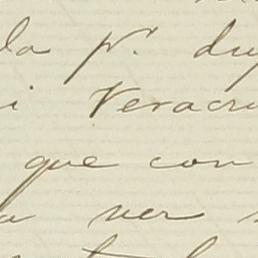 la pr. du
i Veracru
que con
a ver